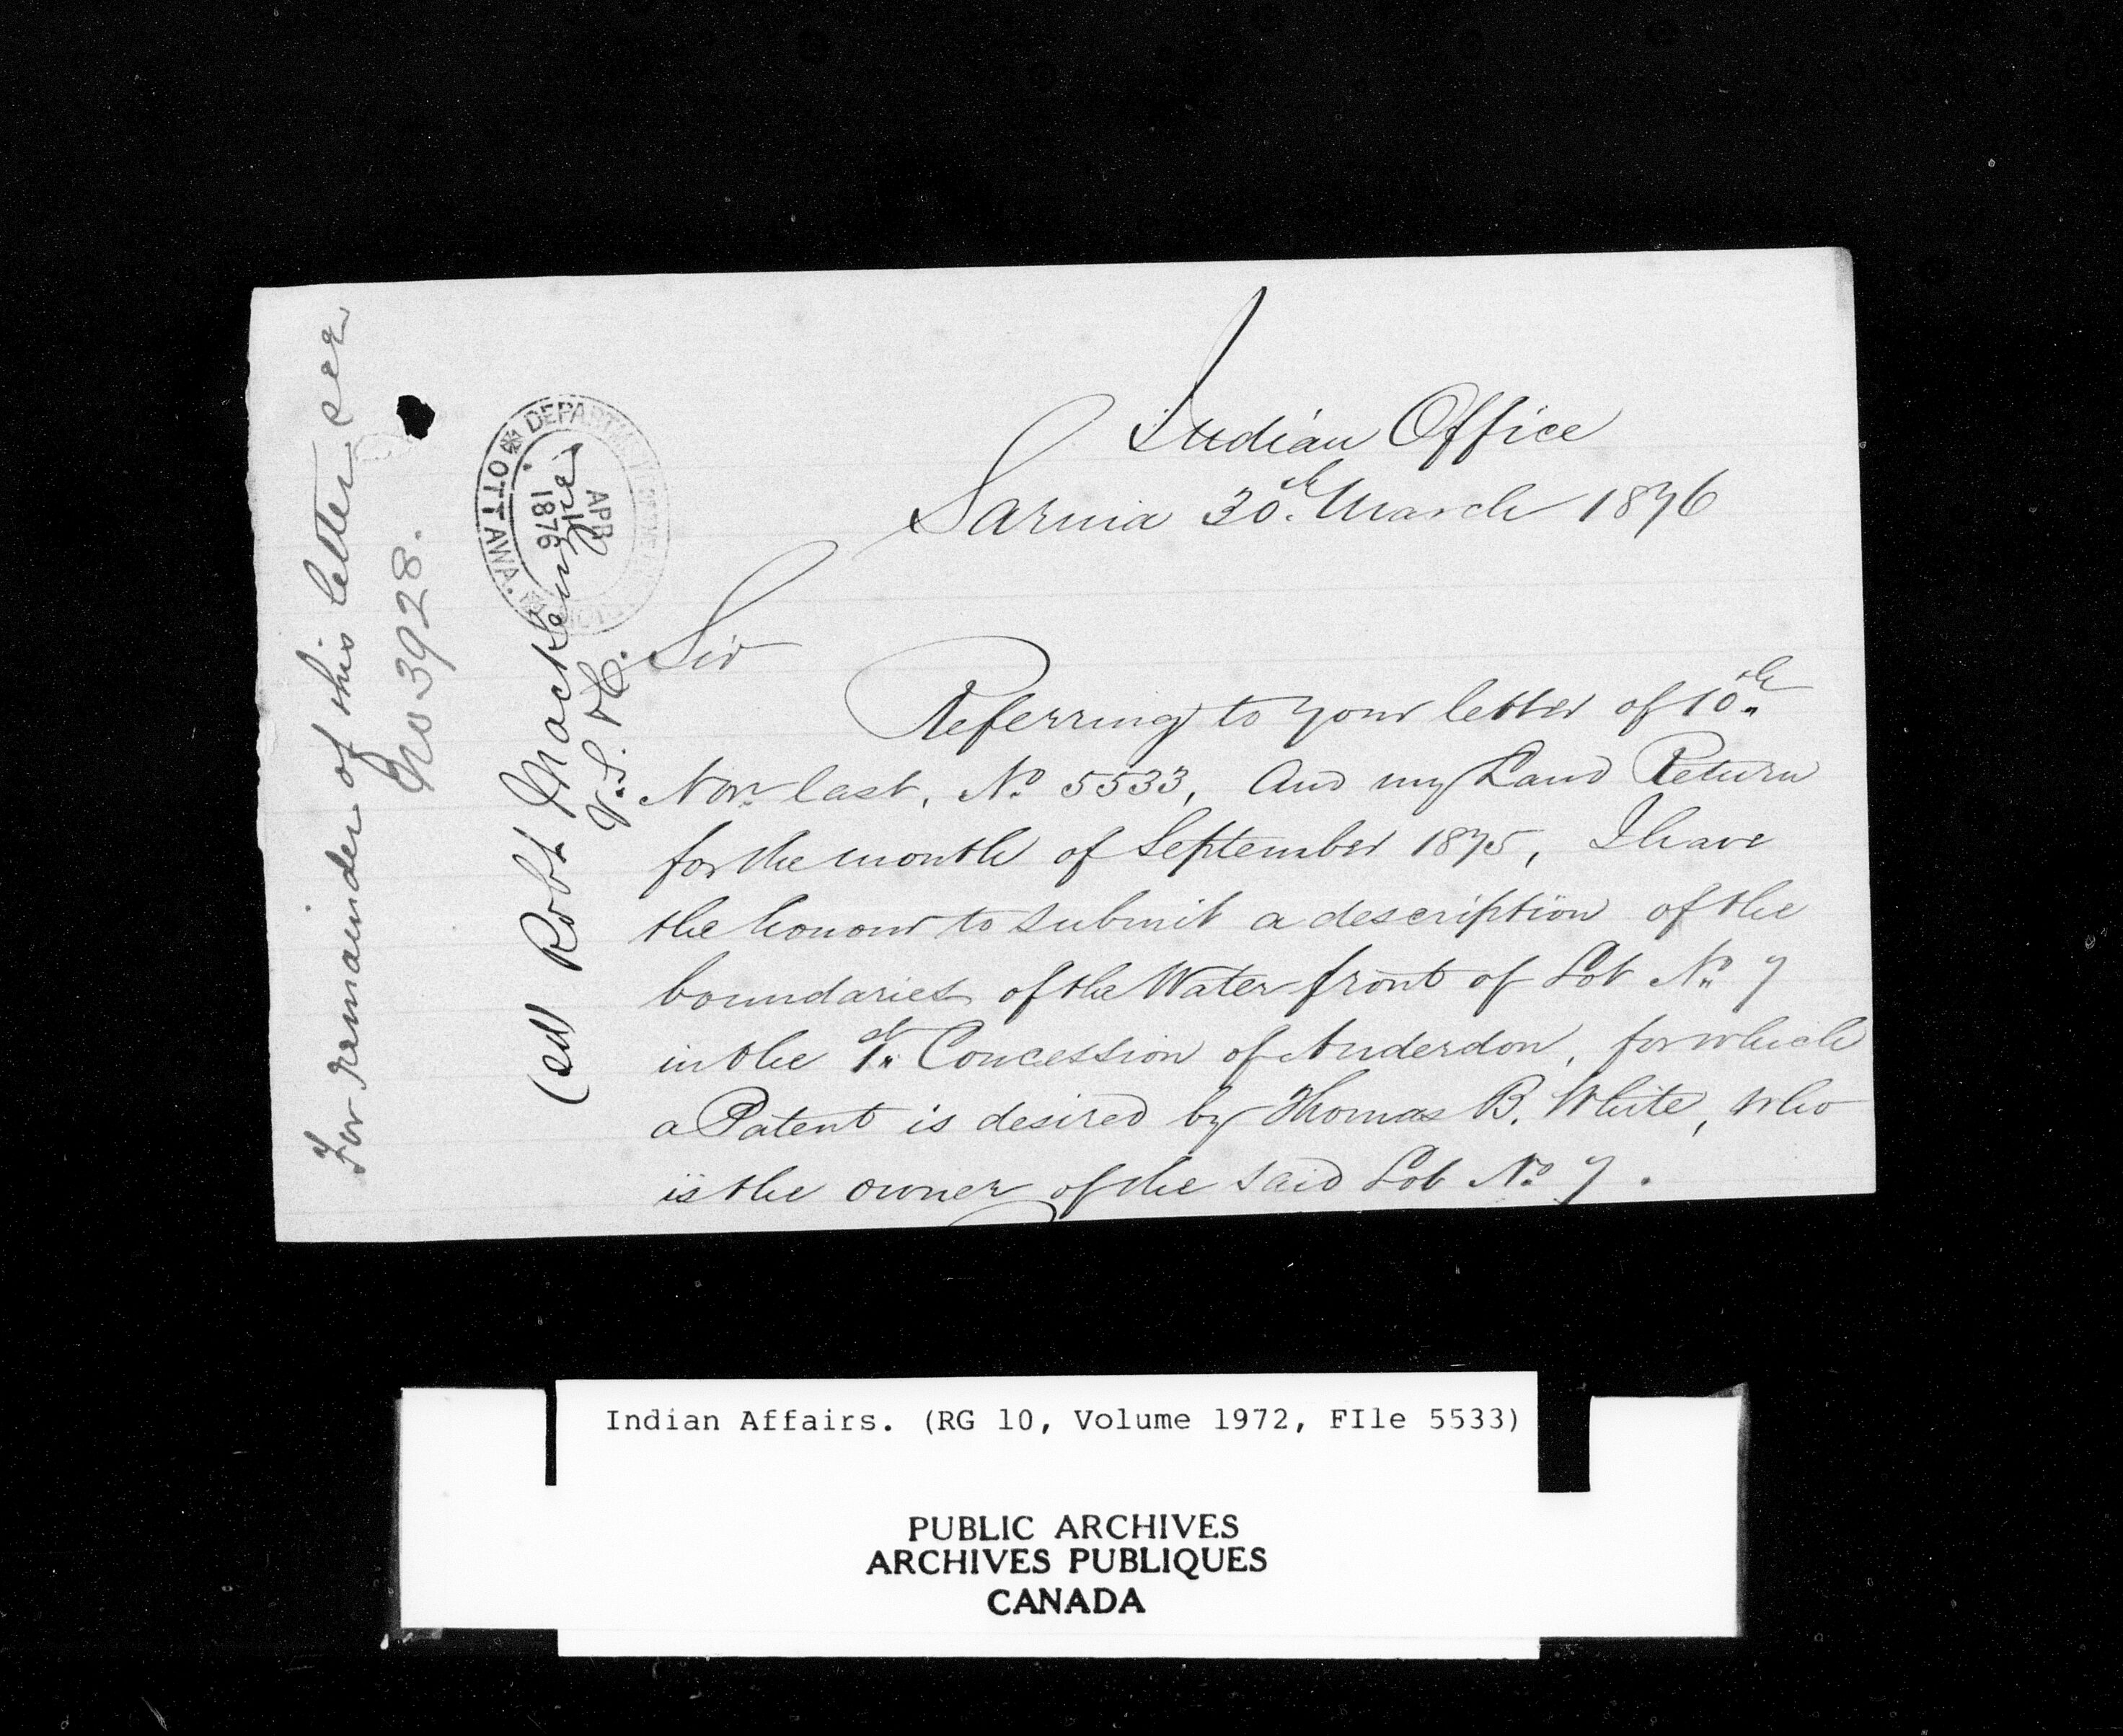 Indian Office
Sarnia 30th March 1876
Sir
Referring to your letter of 10th
Novr last, No 5533, And my Land Return
for the month of September 1875, I have
the honour to submit a description of the
boundaries of the Water front of Lot No 7
in the 1st Concession of Anderdon, for which
a Patent is desired by Thomas B. White, who
is the owner of the said Lot No 7.
For remainder of this letter see
No 3928.
(sd) Robt Mackenzie
V. S. &C.
DEPARTM
APR
1876
OTTAWA.
Indian Affairs. (RG 10, Volume 1972, FIle 5533)
PUBLIC ARCHIVES
ARCHIVES PUBLIQUES
CANADA